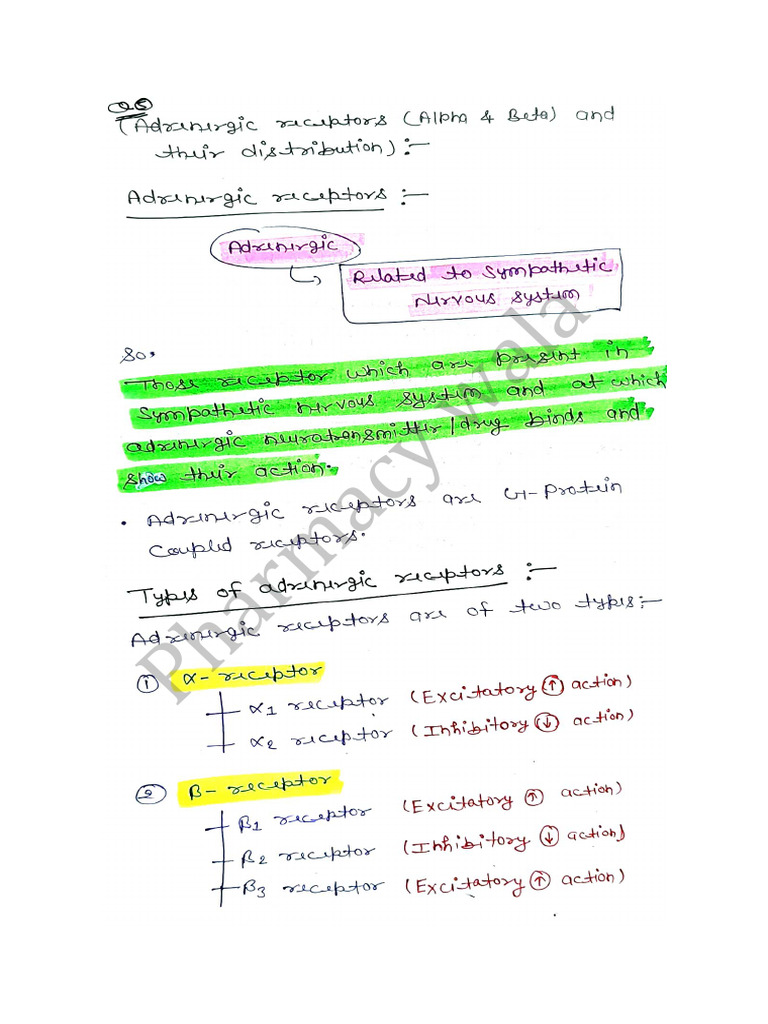 Q5
(Adrenergic receptors (Alpha & Beta) and
their distribution) :-
Adrenergic receptors :-
Adrenergic
Related to sympathetic
nervous system
So,
Those receptor which are present in
sympathetic nervous system and at which
adrenergic neurotransmitter/drug binds and
show their action.
• Adrenergic receptors are G-Protein
Coupled receptors.
Types of adrenergic receptors :-
Adrenergic receptors are of two types:-
① α- receptor
α1 receptor (Excitatory ↑ action)
α2 receptor (Inhibitory ↓ action)
② β- receptor
β1 receptor (Excitatory ↑ action)
β2 receptor (Inhibitory ↓ action)
β3 receptor (Excitatory ↑ action)
Pharmacy Wala